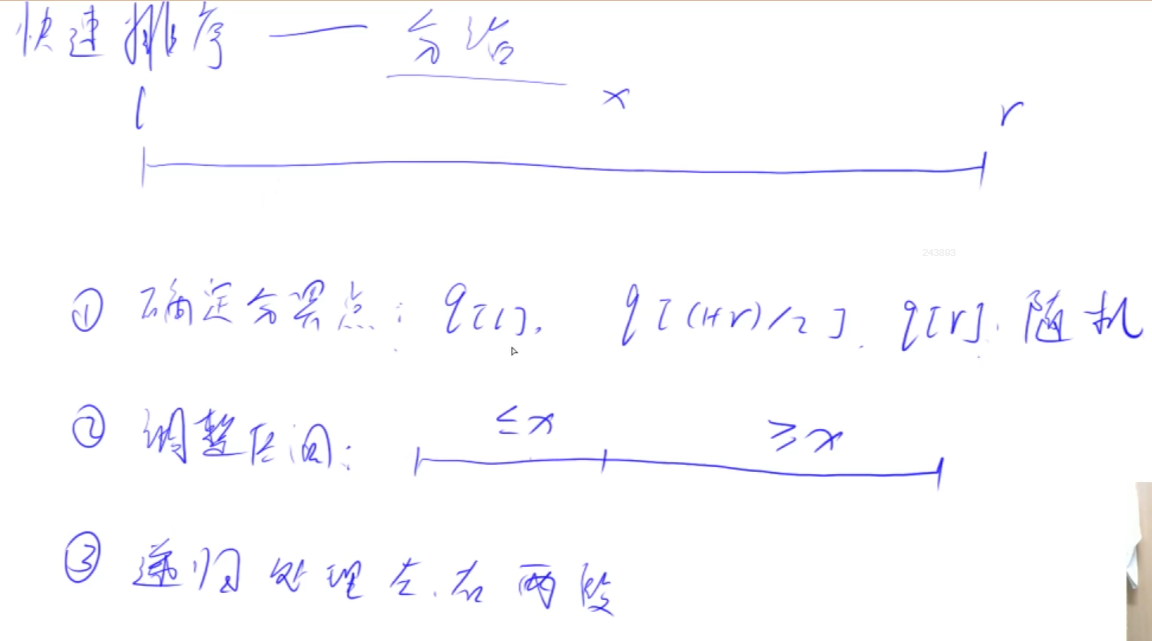 快速排序 —— 分治
l x r
243893
① 确定分界点: q[l], q[(l+r)/2], q[r], 随机
② 调整区间: ≤x ≥x
③ 递归处理左、右两段